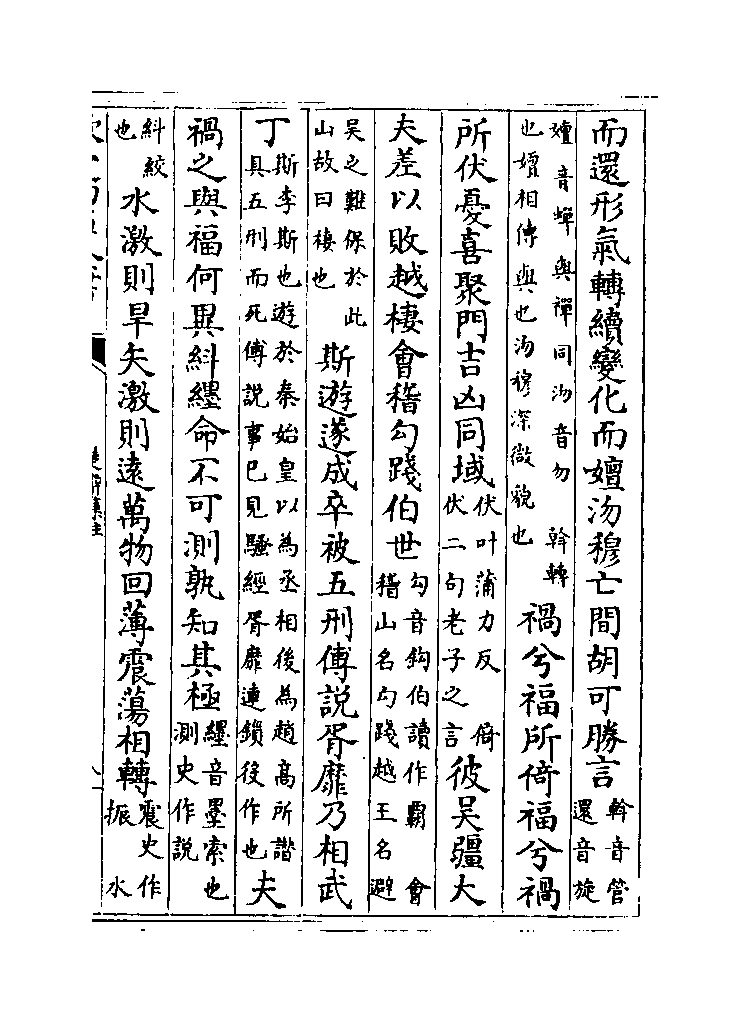 而還形氣轉續變化而嬗沕穆亡間胡可勝言
斡音管
還音旋
嬗音蟬與禪同沕音勿　斡轉
也嬗相傳與也沕穆深微貌也
禍兮福所倚福兮禍
所伏憂喜聚門吉凶同域
伏叶蒲力反　倚
伏二句老子之言
彼吳彊大
夫差以敗越棲會稽勾踐伯世
勾音鈎伯讀作霸　會
稽山名勾踐越王名　避
吳之難保於此
山故曰棲也
斯遊遂成卒被五刑傅說胥靡乃相武
丁
斯李斯也遊於秦始皇以為丞相後為趙高所譖
具五刑而死傅說事已見騷經胥靡連鎖役作也
夫
禍之與福何異糾纆命不可測孰知其極
纆音墨索也
測史作說
糾絞
也
水激則旱矢激則遠萬物回薄震蕩相轉
震史作
振　水
楚辭集註